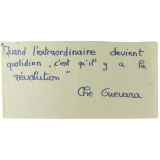 "Quand l'extraordinaire devient
quotidien, c'est qu'il y a la
révolution"
Che Guevara